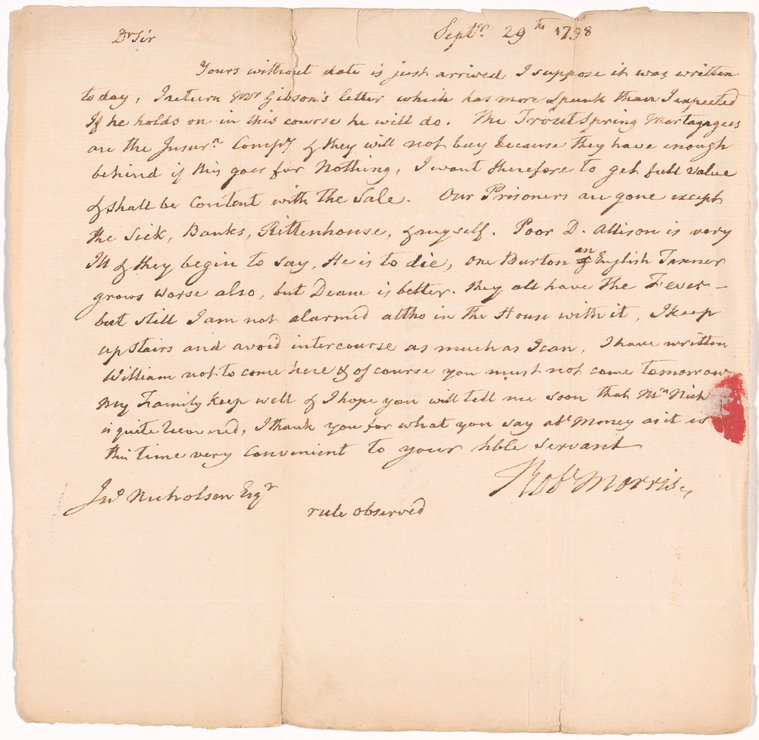 Dr Sir Septr 29th 1798
Yours without date is just arrived, I suppose it was written
today, I return Mr Gibson's letter which has more Spunk than I expected
If he holds on in this course he will do. The Trout Spring Mortgagees
are the Insurn Compy & they will not buy because they have enough
behind if this goes for Nothing, I want therefore to get full value
& shall be Content with the Sale. Our Prisoners are gone except
the Sick, Banks, Rittenhouse, & myself. Poor D. Allison is very
Ill & they begin to say, He is to die, one Burton an English Tanner
grows worse also, but Deane is better. They all have The Fever —
but still I am not alarmed altho in the House with it, I keep
up Stairs and avoid intercourse as much as I can, I have written
William not to come here & of course you must not come tomorrow
My Family keep well & I hope you will tell me soon that Mrs Nich
is quite recovered, I thank you for what you say abt Money as it is
this time very Convenient to your hble servant
Robt Morris
Jno Nicholson Esqr
rule observed